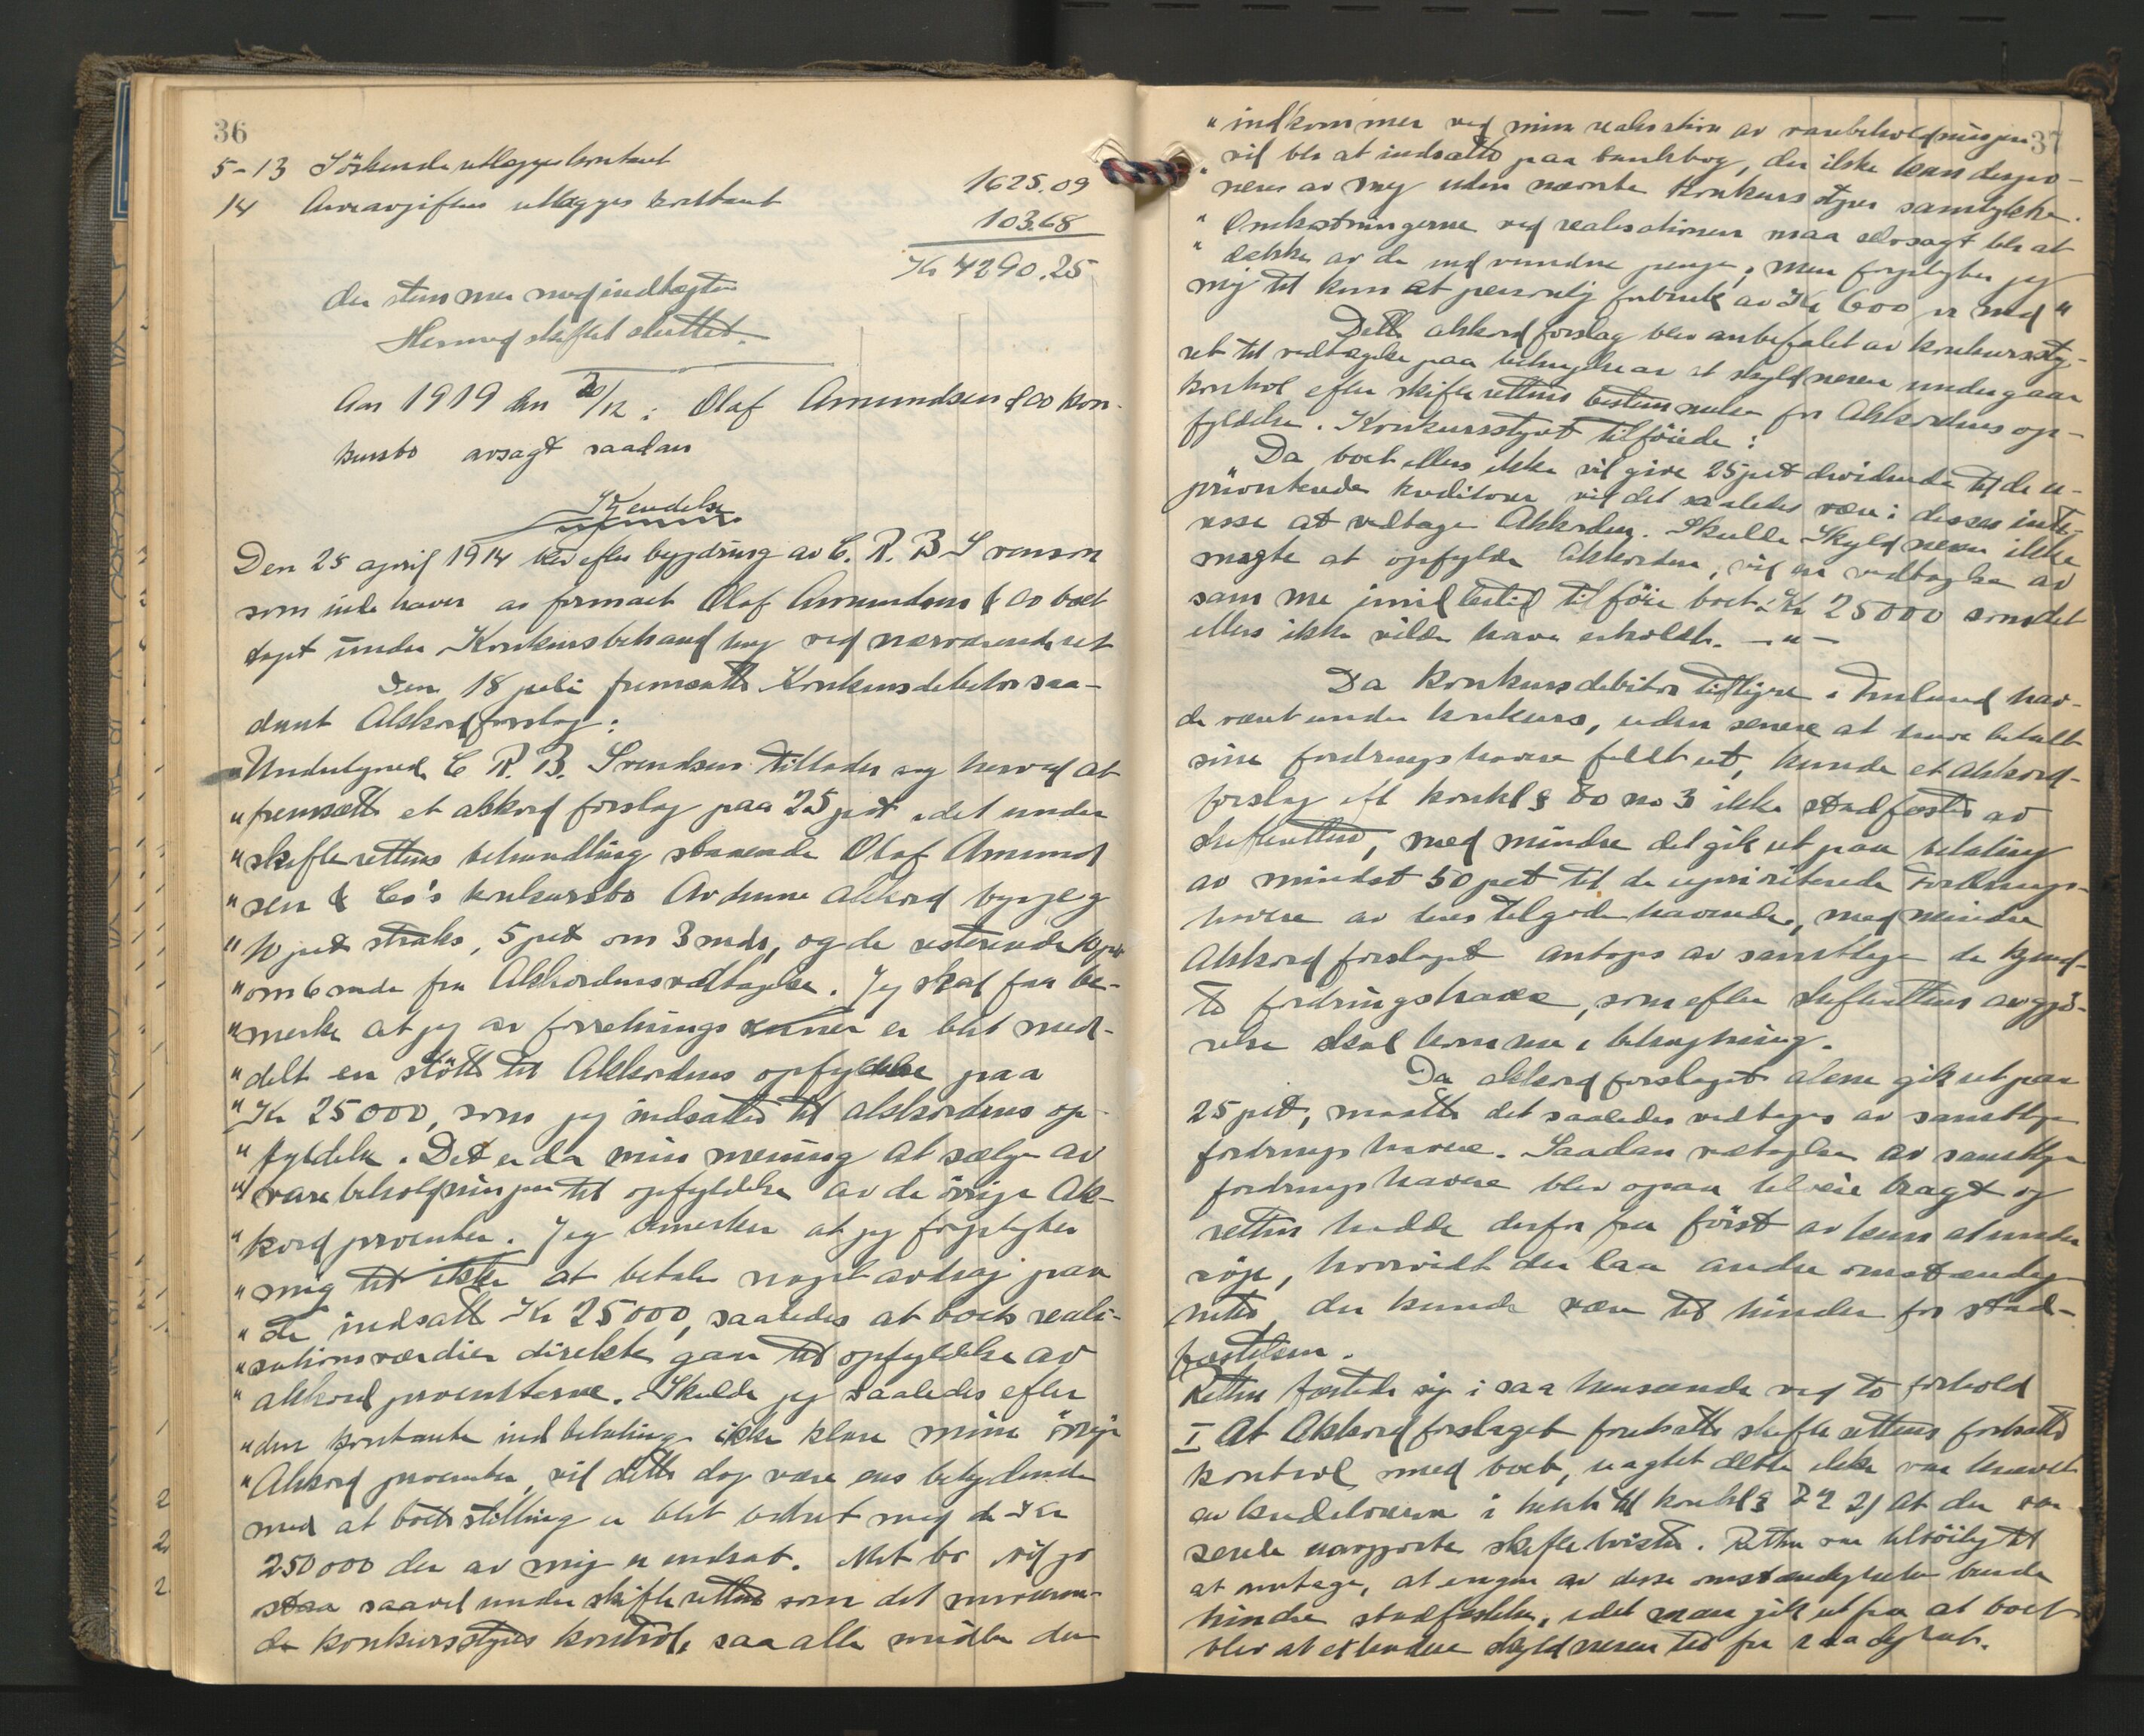 36
5-13 Söskende utlægges kontant 1625.09
14 Arveavgiften utlægges kontant 103.68
Kr 4290.25
der stemmer med indtægten
Hermed skiftet sluttet.
Aar 1919 den 20/12 i Olaf Amundsen & Co kon-
kursbo avsagt saadan
Kjendelse
Den 25 april 1914 blev efter begjæring av C. R. B. Svenson
som indehaver av firmaet Olaf Amundsens & Co boet
taget under Konkursbehandling ved nærværende ret
Den 18 juli fremsatte Konkursdebitor saa-
dant Akkordforslag:
Undertegnede C. R. B. Svendsen tillader sig herved at
"fremsætte et akkordforslag paa 25 pct i det under
"skifterettens behandling staaende Olaf Amund
"sen & Co's konkursbo Av denne akkord byr jeg
"10 pct straks, 5 pct om 3 mdr, og de resterende 10 pct
"om 6 mdr fra Akkordens vedtagelse. Jeg skal faa be-
"merke at jeg av forretnings venner er blit med-
"delt en stötte til Akkordens opfyldelse paa
"Kr 25000, som jeg indsatte til akkordens op-
"fyldelse. Det er da min mening at sælge av
"varebeholdningen til opfyldelse av de övrige Ak-
"kordprocenter. Jeg bemerker at jeg forpligter
"mig til ikke at betale noget avdrag paa
"de indsatte Kr 25000, saaledes at boets reali-
"sationsværdier direkte gaar til opfyldelse av
"akkordprocenterne. Skulde jeg saaledes efter
"den kontante indbetaling ikke klare mine övrige
"Akkordprocenter, vil dette dog være ens betydende
med at boets stilling er blit bedret med de Kr
250000 der av mig er indsat. Mit bo vil jo
staa saavel under skifteretten som det nuværen-
de konkursstyres kontrol, saa alle midler der
37
"indkommer ved min realisation av varebeholdningen
"vil bli at indsætte paa bankbog, der ikke kan dispo-
"neres av mig uden nævnte konkursstyres samtykke.
"Omkostningerne ved realisationen maa selvsagt bli at
"dække av de indvundne penge, men forpligter jeg
mig til kun at personlig forbruk av Kr 600 pr md"
Dette akkordforslag blev anbefalet av konkurssty-
ret til vedtagelse paa betingelse av at skyldneren undergaar
kontrol efter skifterettens bestemmelse for Akkordens op-
fyldelse. Konkursstyret tilföiede:
Da boet ellers ikke vil give 25 pct dividende til de u-
prioriterede kreditorer vil det saaledes være i disses inte-
resse at vedtage Akkorden. Skulde Skyldneren ikke
magte at opfylde Akkorden, vil en vedtagelse av
samme imidlertid tilföre boet Kr 25000 som det
ellers ikke vilde have erholdt. —"—
Da konkursdebitor tidligere i havd-
de været under konkurs, uden senere at have betalt
sine fordringshavere fuldt ut, kunde et akkord-
forslag eft konkl § 80 no 3 ikke stadfæstes av
skifteretten, med mindre det gik ut paa betaling
av mindst 50 pct til de uprioriterede Fordrings-
havere av deres tilgodehavende, med mindre
Akkordforslaget antoges av samtlige de kjend-
te fordringshavere, som efter skifterettens avgjö-
relse skal komme i betragtning.
Da akkordforslaget alene gik ut paa
25 pct, maatte det saaledes vedtages av samtlige
fordringshavere. Saadan vedtagelse av samtlige
fordringshavere blev ogsaa tilveie bragt og
retten hadde derfor fra först av kun at under
söge, hvorvidt der laa andre omstændig-
heter, der kunde være til hinder for stad-
fæstelsen.
Retten fæstede sig i saa henseende ved to forhold
I At Akkordforslaget forutsatte skifterettens fortsatte
kontrol med boet, uagtet dette ikke var krævet
av kreditorerne i henh til konkl § 2) At der var
uavgjorte skifte tvister. Retten var tilböielig til
at antage, at ingen av disse omstændigheter burde
hindre stadfæstelse, idet man gik ut fra at boet
blev at extradere skyldneren til fri raadighet.